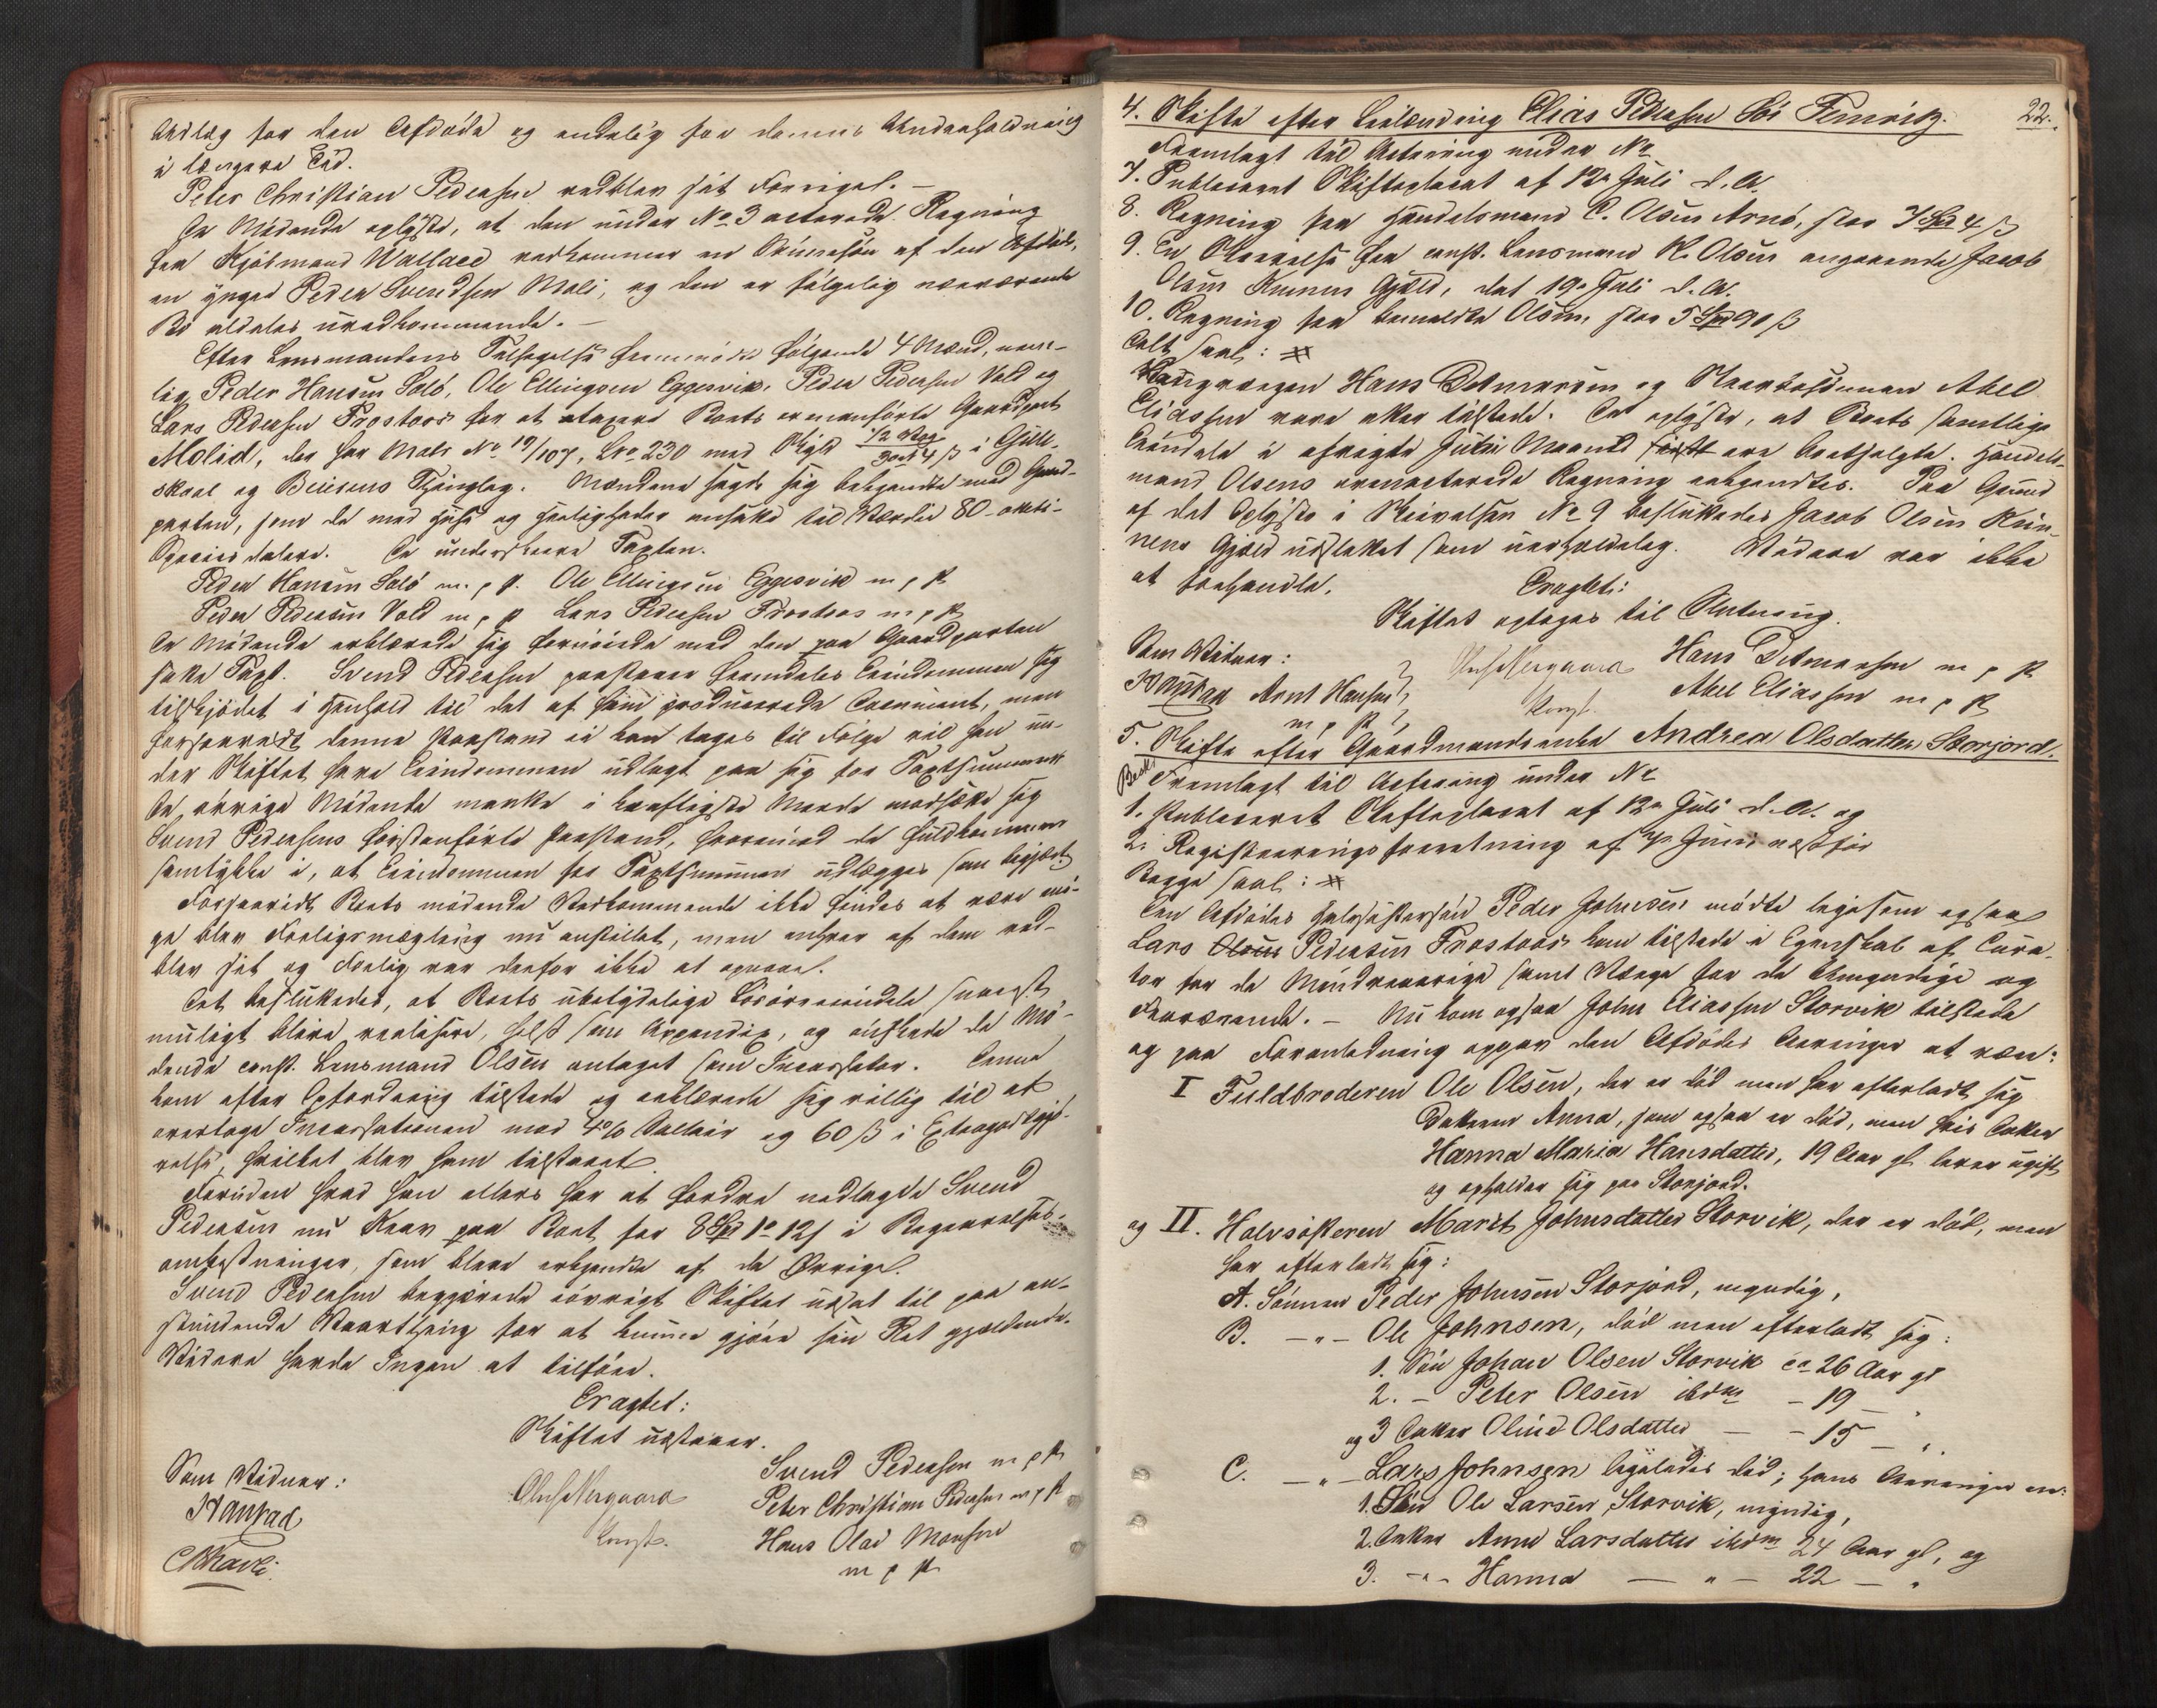 Udlæg for den Afdøde og endelig for dennes Underholdning
i længere Tid.
Peter Christian Pedersen vedblev sit Forrige. —
De Mødende oplyste, at den under No 3 acterede Regning
fra Kjøbmand Wallace vedkommer en Sønnesøn af den Afdøde,
en yngre Peder Svendsen Moli, og den er følgelig nærværende
Bo aldeles uvedkommende. —
Efter Lensmandens Tilsigelse fremmødte følgende 4 Mænd, nem-
lig Peder Hansen Solø, Ole Ellingsen Eggesvik, Peder Pedersen Vold og
Lars Pedersen Frostoos for at taxere Boets ommeldte Gaardpart
Molid, der har Matr No 19/107, Lno 230 med Skyld 1/2 Vog
4 ß i Gilde-
skaal og Beierens Thinglag. Mændene sagde sig bekjendte med Gaard-
parten, som de med Huse og Herligheder ansatte til Værdie 80 - otteti -
Speciesdaler. De underskrev Taxten.
Peder Hansen Solø m. p. P. Ole Ellingsen Eggesvik m p P.
Peder Pedersen Vold m p P Lars Pedersen Frostoos m p P
De Mødende erklærede sig fornøiede med den paa Gaardparten
satte Taxt. Svend Pedersen paastaaer fremdeles Eiendommen sig
tilskjødet i Henhold til det af ham producerede Document, men
forsaavidt denne Paastand ei kan tages til Følge vil han un-
der Skiftet have Eiendommen udlagt paa sig for Taxtsummen
De øvrige Mødende maatte i kraftigste Maade modsætte sig
Svend Pedersens førstanførte Paastand, hvorimod de fuldkommen
samtykke i, at Eiendommen for Taxtsummen udlægges som begjært.
Forsaavidt Boets mødende Vedkommende ikke findes at være eni-
ge blev Forligsmægling nu anstillet, men enhver af dem ved-
blev sit og Forlig var derfor ikke at opnaae.
Det besluttedes, at Boets ubetydelige Løsøreeiendele snarest
muligt blive realisere, helst som Appendix, og ønskede de Mø-
dende const. Lensmand Olsen antaget som Incassator. Denne
kom efter Opfordring tilstede og erklærede sig villig til at
overtage Incassationen mod 4% Sallair og 60 ß i Extragodtgjø-
relse, hvilket blev ham tilstaaet.
Foruden hvad han ellers har at fordre nedlagde Svend
Pedersen nu Krav paa Boet for 8 Spd 1 o 12 s i Begravelses-
omkostninger, som bleve erkjendte af de Øvrige.
Svend Pedersen begjærede iøvrigt Skiftet udsat til paa an-
stundende Vaarthing for at kunne gjøre sin Ret gjældende.
Videre havde Ingen at tilføre.
Eragtet:
Skiftet udstaaer.
Som Vidner: Svend Pedersen m p P
Hansrad Peter Christian Pedersen m p P
Const. Hans Olai Monsen
m p P
22.
4. Skifte efter Leilænding Elias Pedersen Sør Femris.
Fremlagt til Actering under No
7. Publiceret Skifteplacat af 12te Juli d. A.
8. Regning fra Handelsmand C. Olsen Arnø, stor 7 Spd 4 ß
9. En Skrivelse fra const. Lensmand K. Olsen angaaende Jacob
Olsens Gjæld, dat 19de Juli d. A.
10. Regning fra bemeldte Olsen, stor 5 Spd 90 ß
Alt saal: #
Hans Detmersen og Abel
Eliassen vare atter tilstede. De oplyste, at Boets samtlige
Eiendele i afvigte Juni Maaned ere bortsolgte. Handels-
mand Olsens ovenacterede Regning erkjendtes. Paa Grund
af det Oplyste i Skrivelsen No 9 besluttedes Jacob Olsen
Gjæld udslettet som uerholdelig. Videre var ikke
at forhandle.
Eragtet:
Skiftet optages til Slutning.
Som Vidner: Hans Detmersen m p P
Hansrad Arnt Hansen Const. Abel Eliassen m p P
m p P
5. Skifte efter Gaardmandsenke Andrea Olsdatter Storjord.
Fremlagt til Actering under No
1. Publiceret Skifteplacat af 12te Juli d. A. og
2. Registreringsforretning af Juni næstfør
Begge saal: #
Den Afdødes Halvsøstersøn Peder Johnsen mødte ligesom ogsaa
Lars Pedersen Frostoos kom tilstede i Egenskab af Cura-
tor for de Mindreaarige samt Værge for de Umyndige og
Fraværende. — Nu kom ogsaa John Eliassen Storvik tilstede
og paa Foranledning opgav den Afdødes Arvinger at være:
I Fuldbroderen Ole Olsen, der er død men har efterladt sig
Datteren Anna, som ogsaa er død, men hvis Datter
Hanna Maria Hansdatter, 19 Aar gl. lever ugift
og opholder sig paa Storjord.
og II. Halvsøsteren Marit Johnsdatter Storvik, der er død, men
har efterladt sig:
A. Sønnen Peder Johnsen Storjord, myndig,
B. — " — Ole Johnsen, død men efterladt sig:
1. Søn Johan Olsen Storvik ca 26 Aar gl
2. — Peter Olsen ibdm — 19 — "
og 3 Datter Olind Olsdatter — — 15 — " .
C. — " — Lars Johnsen ligeledes død; hans Arvinger ere:
1. Søn Ole Larsen Storvik, myndig,
2. Datter Anne Larsdatter ibdm 24 Aar gl, og
3. — " — Hanna — " — 22 — "